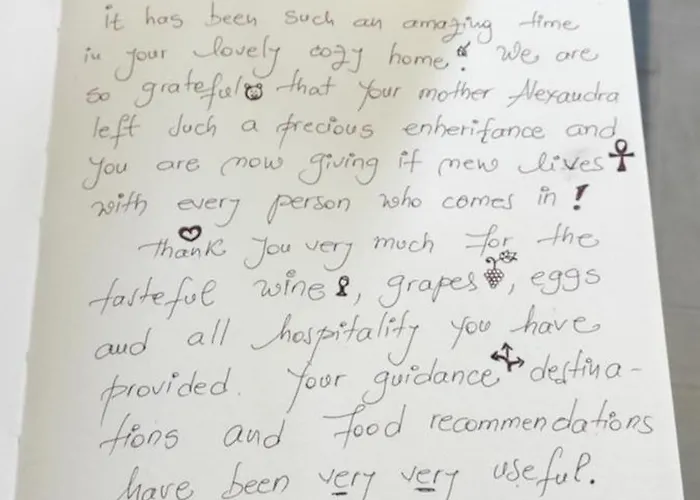 it has been such an amazing time
in your lovely cozy home! We are
so grateful that your mother Alexandra
left such a precious enheritance and
you are now giving it new lives
with every person who comes in!
Thank you very much for the
tasteful wine, grapes, eggs
and all hospitality you have
provided. Your guidance destina-
tions and food recommendations
have been very very useful.